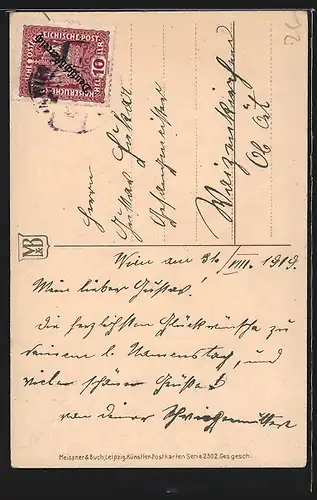 EICHISCHE POST
Deutschösterreich
10
Herrn
Gustav
Weizenkirchen
Ob. Öst.
MB
&B
Wien am 31./VIII. 1919.
Mein lieber Gustav!
die herzlichsten Glückwünsche zu
deinem l. Namenstag, und
viele schöne Grüße
von deiner Schwiegermutter
Meissner & Buch, Leipzig. Künstler-Postkarten Serie 2302. Ges. gesch.
26